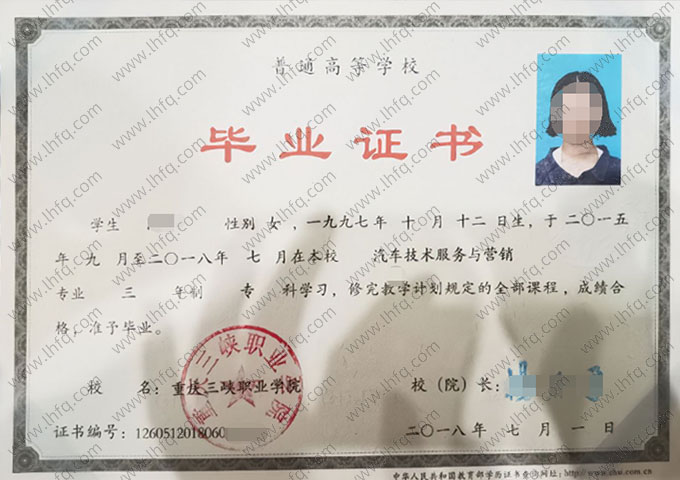 普通高等学校
毕业证书
学生 性别 女 ，一九九七年 十 月 十二 日生，于二〇一五
年 九 月至二〇一八年 七 月在本校 汽车技术服务与营销
专业 三 年制 专 科学习，修完教学计划规定的全部课程，成绩合
格，准予毕业。
校 名：重庆三峡职业学院 校（院）长：
证书编号：1260512018060 二〇一八年 七 月 一 日
中华人民共和国教育部学历证书查询网址：http://www.chsi.com.cn
www.lhfq.com